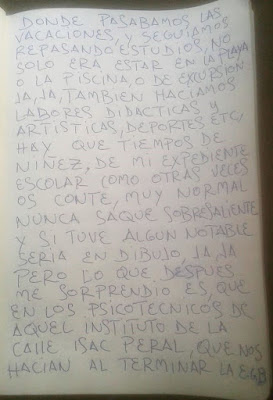 DONDE PASABAMOS LAS
VACACIONES, Y SEGUIAMOS
REPASANDO ESTUDIOS, NO
SOLO ERA ESTAR EN LA PLAYA
O LA PISCINA, O DE EXCURSION
JA, JA, TAMBIEN HACIAMOS
LABORES DIDACTICAS Y
ARTISTICAS, DEPORTES ETC,
HAY QUE TIEMPOS DE
NIÑEZ, DE MI EXPEDIENTE
ESCOLAR COMO OTRAS VECES
OS CONTE, MUY NORMAL
NUNCA SAQUE SOBRESALIENTE
Y SI TUVE ALGUN NOTABLE
SERIA EN DIBUJO, JA, JA
PERO LO QUE DESPUES
ME SORPRENDIO ES, QUE
EN LOS PSICOTECNICOS DE
AQUEL INSTITUTO DE LA
CALLE ISAC PERAL, QUE NOS
HACIAN AL TERMINAR LA EGB